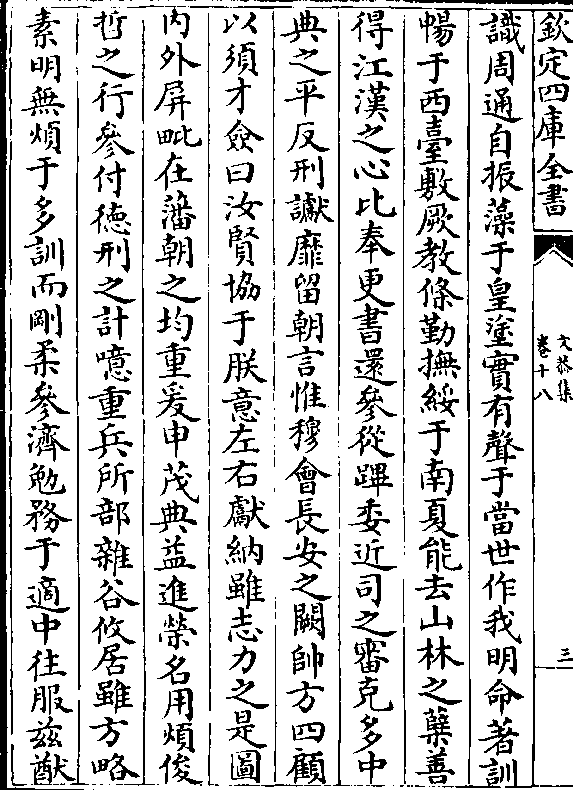 欽定四庫全書
文恭集
卷十八
三
識周通自振藻于皇塗實有聲于當世作我明命著訓
暢于西臺敷厥教條勤撫綏于南夏能去山林之蘖善
得江漢之心比奉更書還參從蹕委近司之審克多中
典之平反刑讞靡留朝言惟穆會長安之闕帥方四顧
以須才僉曰汝賢協于朕意左右獻納雖志力之是圖
内外屏毗在藩朝之均重爰申茂典益進榮名用煩俊
哲之行參付徳刑之計噫重兵所部雜谷攸居雖方略
素明無煩于多訓而剛柔參濟勉務于適中往服兹猷